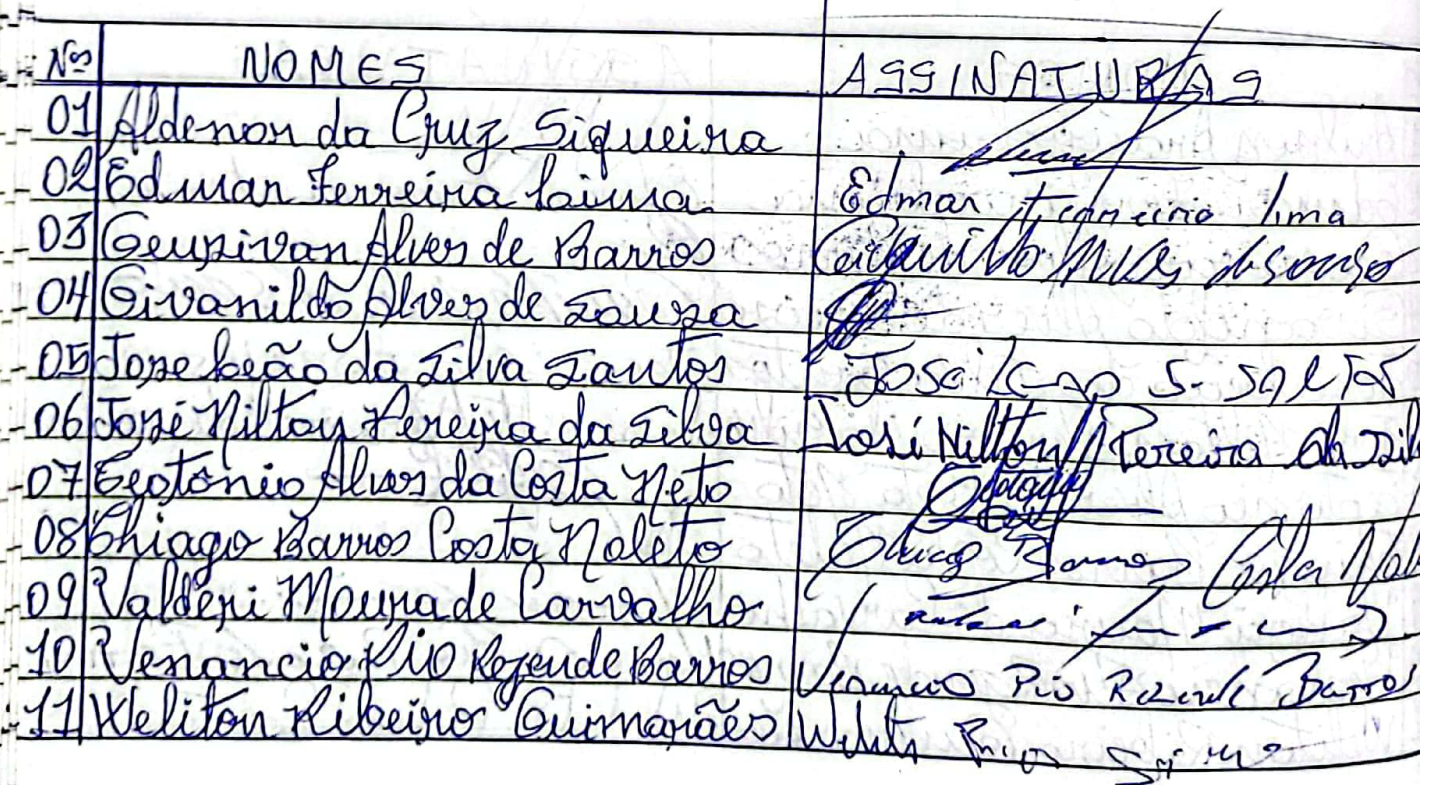 Nos NOMES ASSINATURAS
01 Aldenor da Cruz Siqueira
02 Edmar Ferreira Lima Edmar Ferreira lima
03 Geusivan Alves de Barros
04 Givanildo Alves de Souza
05 Jose Leão da Silva Santos
06 José Nilton Pereira da Silva José Nilton Pereira da Sil
07 Teotônio Alves da Costa Neto
08 Thiago Barros Costa Noleto Thiago Barros Costa Nol
09 Valderi Moura de Carvalho
10 Venancio Pio Rezende Barros Venancio Pio Rezende Barros
11 Weliton Ribeiro Guimarães